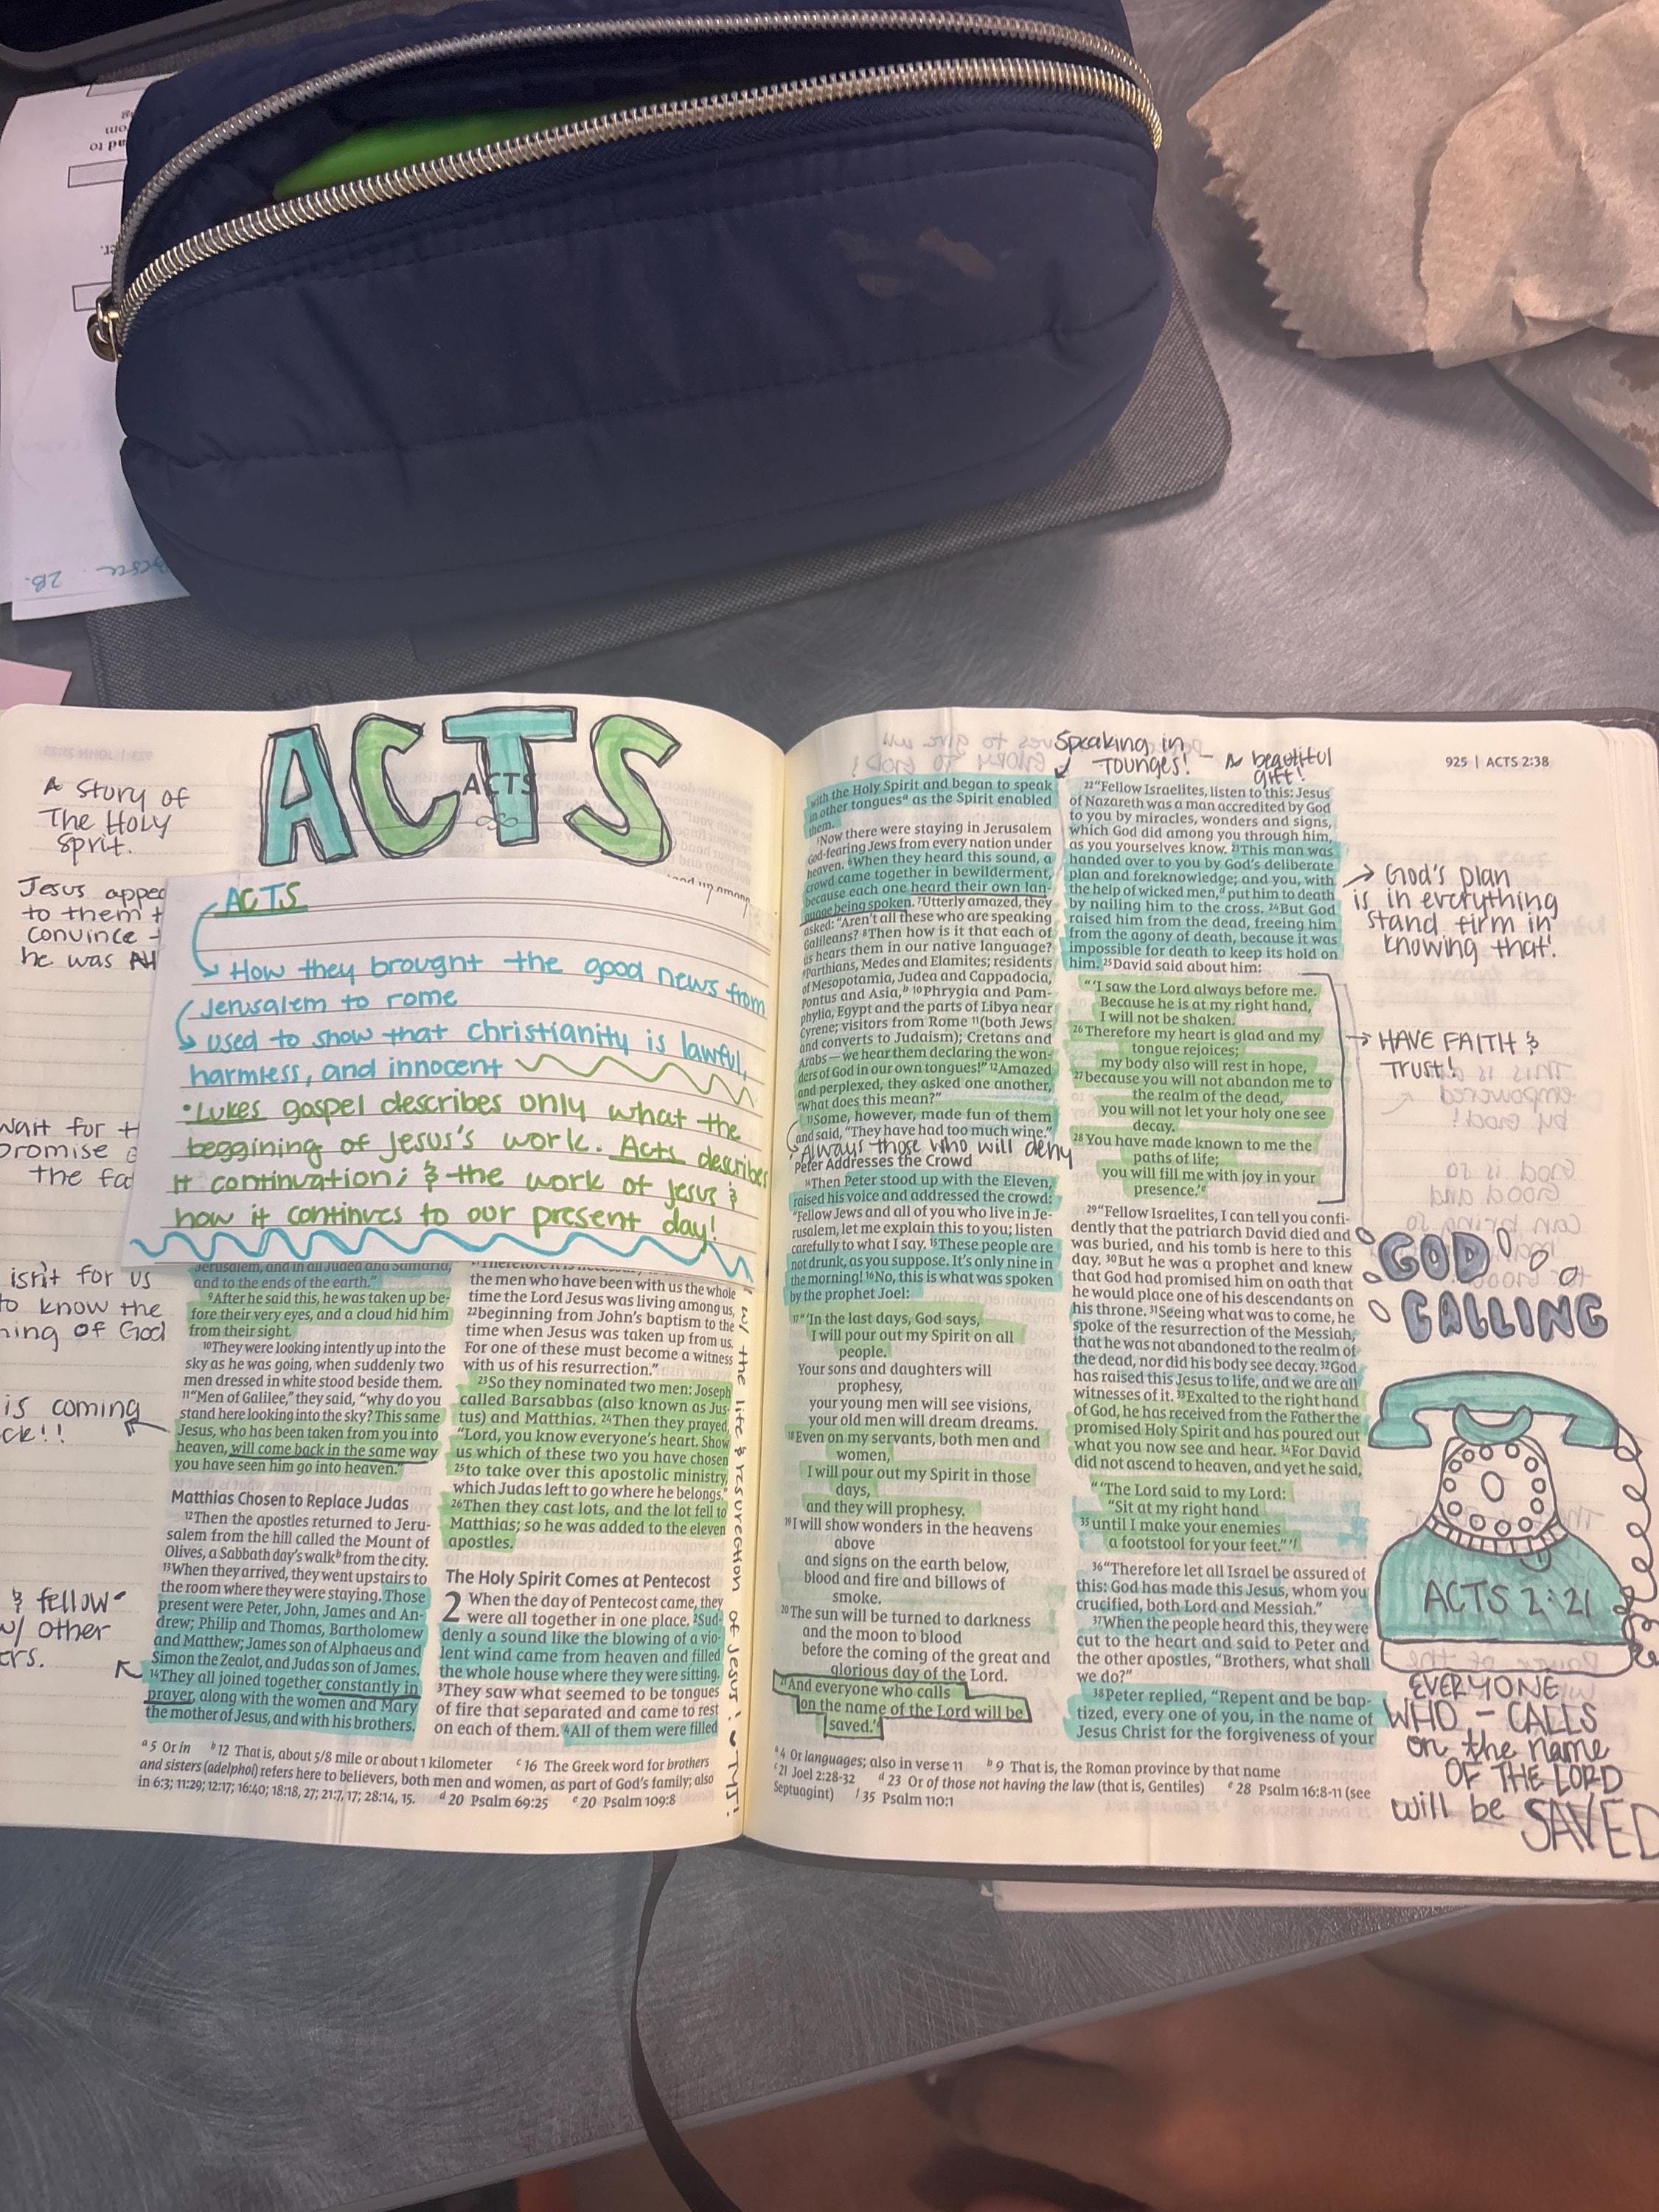 ACTS
ACTS
A story of
The Holy
Sprit.
Jesus
to them
convince
he was
ACTS
How they brought the good news from
Jerusalem to rome
used to show that christianity is lawful,
harmless, and innocent
• Lukes gospel describes only what the
beggining of Jesus's work. Acts describes
it continuation; & the work of Jesus &
how it continues to our present day!
wait for
the
isn't for us
to know the
of God
is coming
& fellow
w/ other
Jerusalem, and in all Judea and Samaria,
and to the ends of the earth."
9After he said this, he was taken up be-
fore their very eyes, and a cloud hid him
from their sight.
10They were looking intently up into the
sky as he was going, when suddenly two
men dressed in white stood beside them.
11"Men of Galilee," they said, "why do you
stand here looking into the sky? This same
Jesus, who has been taken from you into
heaven, will come back in the same way
you have seen him go into heaven."
Matthias Chosen to Replace Judas
12Then the apostles returned to Jeru-
salem from the hill called the Mount of
Olives, a Sabbath day's walkb from the city.
13When they arrived, they went upstairs to
the room where they were staying. Those
present were Peter, John, James and An-
drew; Philip and Thomas, Bartholomew
and Matthew; James son of Alphaeus and
Simon the Zealot, and Judas son of James.
14They all joined together constantly in
prayer, along with the women and Mary
the mother of Jesus, and with his brothers.
the men who have been with us the whole
time the Lord Jesus was living among us,
22beginning from John's baptism to the
time when Jesus was taken up from us.
For one of these must become a witness
with us of his resurrection."
23So they nominated two men: Joseph
called Barsabbas (also known as Jus-
tus) and Matthias. 24Then they prayed,
"Lord, you know everyone's heart. Show
us which of these two you have chosen
25to take over this apostolic ministry,
which Judas left to go where he belongs."
26Then they cast lots, and the lot fell to
Matthias; so he was added to the eleven
apostles.
The Holy Spirit Comes at Pentecost
2 When the day of Pentecost came, they
were all together in one place. 2Sud-
denly a sound like the blowing of a vio-
lent wind came from heaven and filled
the whole house where they were sitting.
3They saw what seemed to be tongues
of fire that separated and came to rest
on each of them. 4All of them were filled
w/ the life & resurection of Jesus!
a 5 Or in b 12 That is, about 5/8 mile or about 1 kilometer c 16 The Greek word for brothers
and sisters (adelphoi) refers here to believers, both men and women, as part of God's family; also
in 6:3; 11:29; 12:17; 16:40; 18:18, 27; 21:7, 17; 28:14, 15. d 20 Psalm 69:25 e 20 Psalm 109:8
925 | ACTS 2:38
Speaking in
Tounges! - A beautiful
gift!
with the Holy Spirit and began to speak
in other tonguesa as the Spirit enabled
them.
5Now there were staying in Jerusalem
God-fearing Jews from every nation under
heaven. 6When they heard this sound, a
crowd came together in bewilderment,
because each one heard their own lan-
guage being spoken. 7Utterly amazed, they
asked: "Aren't all these who are speaking
Galileans? 8Then how is it that each of
us hears them in our native language?
9Parthians, Medes and Elamites; residents
of Mesopotamia, Judea and Cappadocia,
Pontus and Asia,b 10Phrygia and Pam-
phylia, Egypt and the parts of Libya near
Cyrene; visitors from Rome 11(both Jews
and converts to Judaism); Cretans and
Arabs—we hear them declaring the won-
ders of God in our own tongues!" 12Amazed
and perplexed, they asked one another,
"What does this mean?"
13Some, however, made fun of them
and said, "They have had too much wine."
Always those who will deny
Peter Addresses the Crowd
14Then Peter stood up with the Eleven,
raised his voice and addressed the crowd:
"Fellow Jews and all of you who live in Je-
rusalem, let me explain this to you; listen
carefully to what I say. 15These people are
not drunk, as you suppose. It's only nine in
the morning! 16No, this is what was spoken
by the prophet Joel:
17"'In the last days, God says,
I will pour out my Spirit on all
people.
Your sons and daughters will
prophesy,
your young men will see visions,
your old men will dream dreams.
18Even on my servants, both men and
women,
I will pour out my Spirit in those
days,
and they will prophesy.
19I will show wonders in the heavens
above
and signs on the earth below,
blood and fire and billows of
smoke.
20The sun will be turned to darkness
and the moon to blood
before the coming of the great and
glorious day of the Lord.
21And everyone who calls
on the name of the Lord will be
saved.'c
22"Fellow Israelites, listen to this: Jesus
of Nazareth was a man accredited by God
to you by miracles, wonders and signs,
which God did among you through him,
as you yourselves know. 23This man was
handed over to you by God's deliberate
plan and foreknowledge; and you, with
the help of wicked men,d put him to death
by nailing him to the cross. 24But God
raised him from the dead, freeing him
from the agony of death, because it was
impossible for death to keep its hold on
him. 25David said about him:
"'I saw the Lord always before me.
Because he is at my right hand,
I will not be shaken.
26Therefore my heart is glad and my
tongue rejoices;
my body also will rest in hope,
27because you will not abandon me to
the realm of the dead,
you will not let your holy one see
decay.
28You have made known to me the
paths of life;
you will fill me with joy in your
presence.'e
29"Fellow Israelites, I can tell you confi-
dently that the patriarch David died and
was buried, and his tomb is here to this
day. 30But he was a prophet and knew
that God had promised him on oath that
he would place one of his descendants on
his throne. 31Seeing what was to come, he
spoke of the resurrection of the Messiah,
that he was not abandoned to the realm of
the dead, nor did his body see decay. 32God
has raised this Jesus to life, and we are all
witnesses of it. 33Exalted to the right hand
of God, he has received from the Father the
promised Holy Spirit and has poured out
what you now see and hear. 34For David
did not ascend to heaven, and yet he said,
"'The Lord said to my Lord:
"Sit at my right hand
35until I make your enemies
a footstool for your feet."'f
36"Therefore let all Israel be assured of
this: God has made this Jesus, whom you
crucified, both Lord and Messiah."
37When the people heard this, they were
cut to the heart and said to Peter and
the other apostles, "Brothers, what shall
we do?"
38Peter replied, "Repent and be bap-
tized, every one of you, in the name of
Jesus Christ for the forgiveness of your
God's plan
is in everything
stand firm in
knowing that!
HAVE FAITH &
TRUST!
GOD
CALLING
ACTS 2:21
EVERYONE
WHO - CALLS
on the name
OF THE LORD
will be SAVED
a 4 Or languages; also in verse 11 b 9 That is, the Roman province by that name
c 21 Joel 2:28-32 d 23 Or of those not having the law (that is, Gentiles) e 28 Psalm 16:8-11 (see
Septuagint) f 35 Psalm 110:1